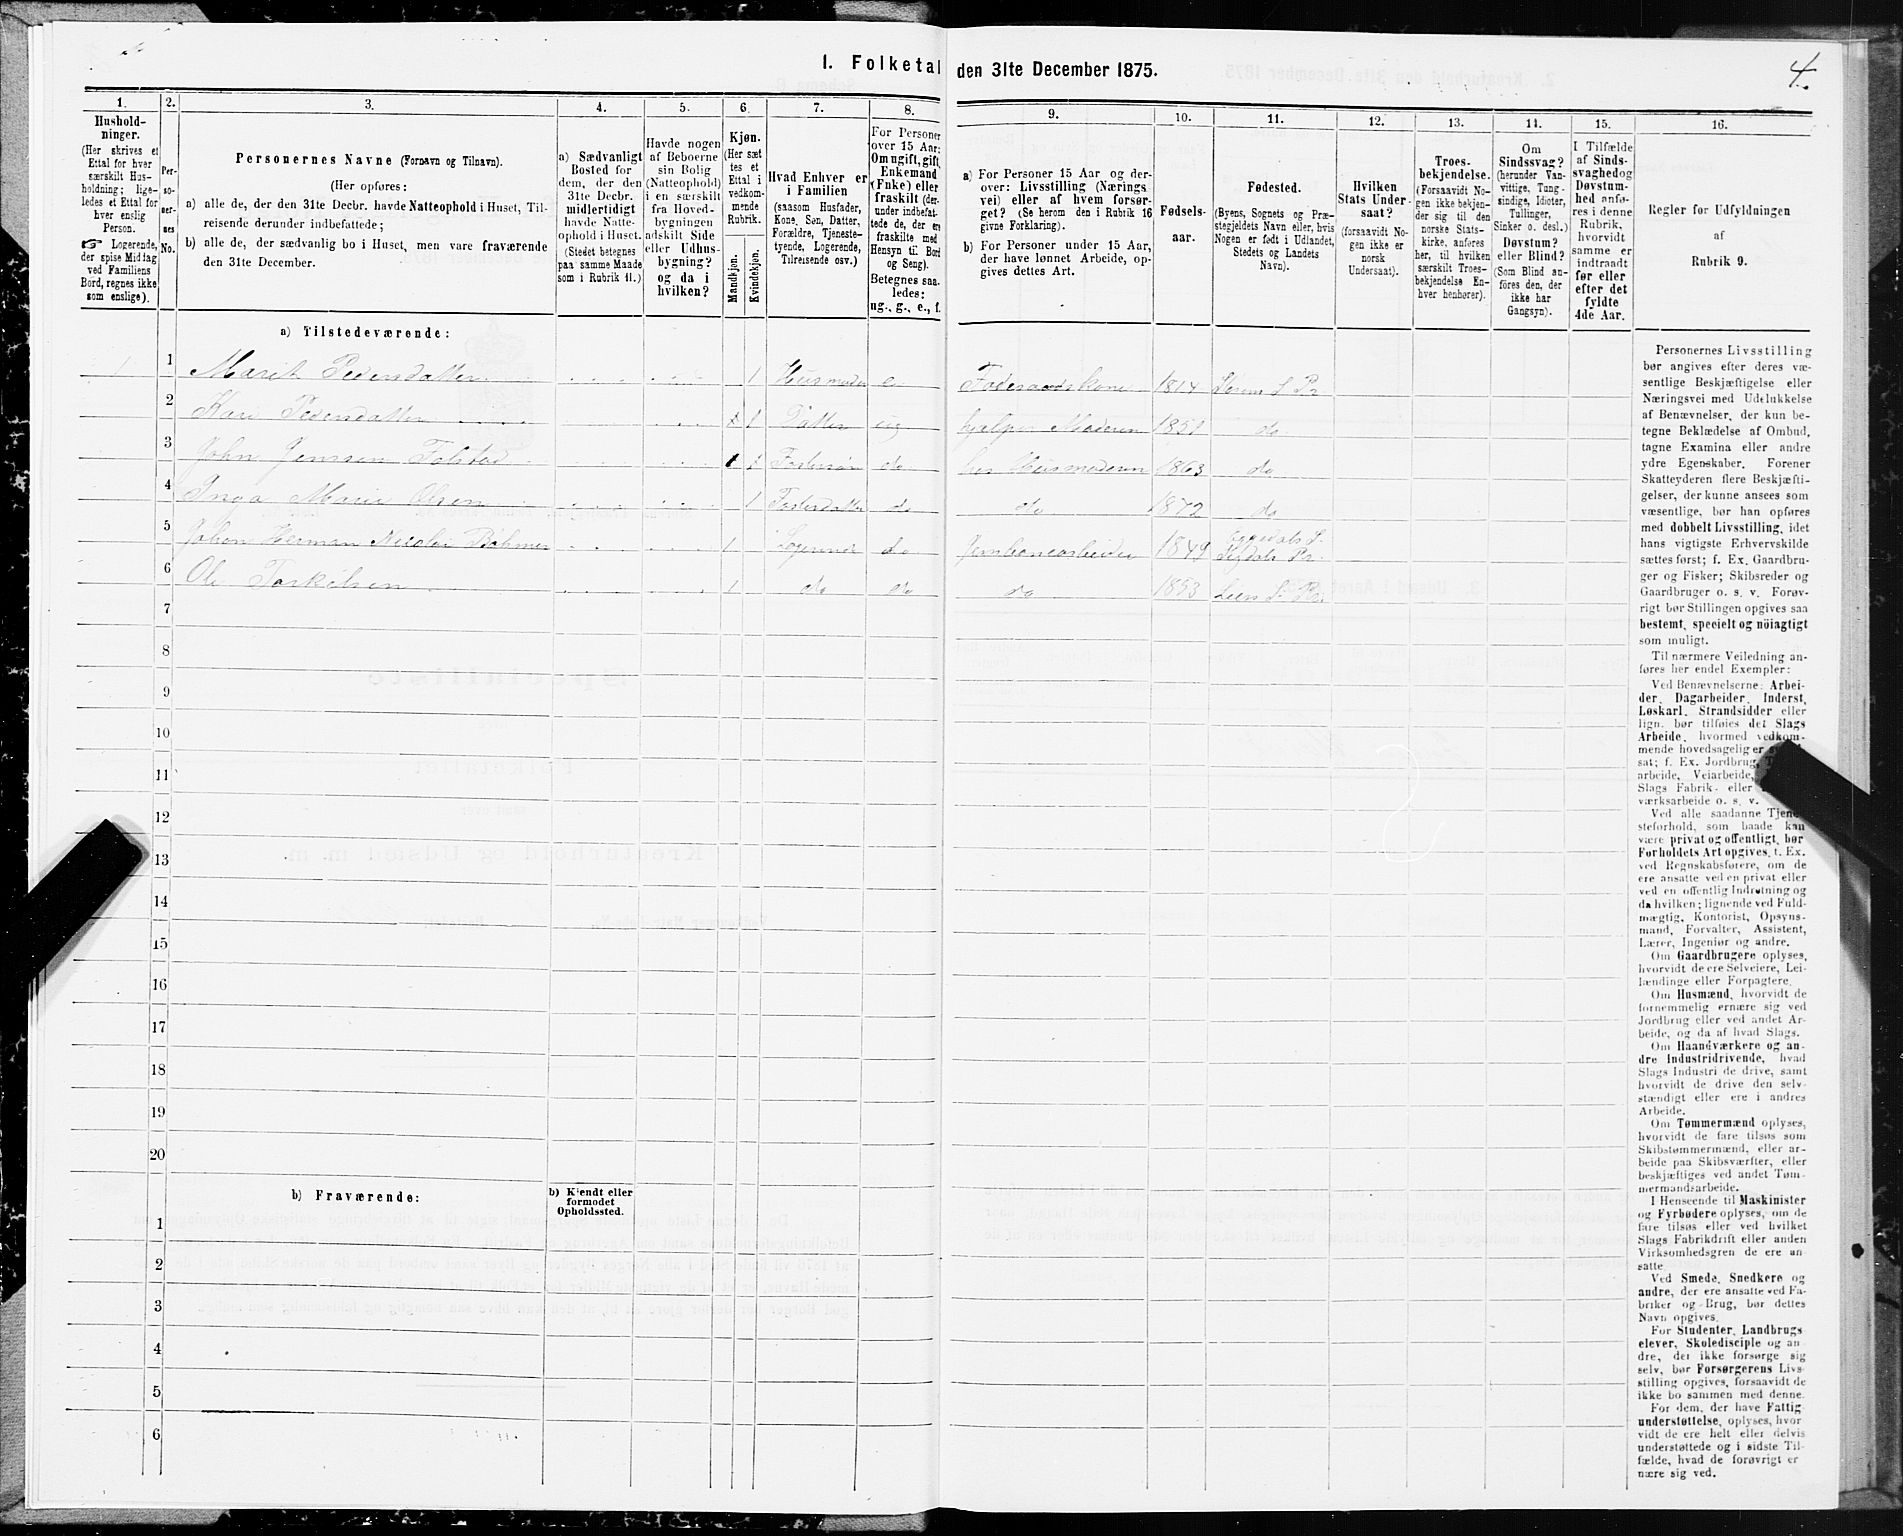 I. Folketal den 31te December 1875.
4.
1.
Hushold-
ninger.
(Her skrives et
Ettal for hver
særskilt Hus-
holdning; lige-
ledes et Ettal for
hver enslig
Person.
☞ Logerende,
der spise Middag
ved Familiens
Bord, regnes ikke
som enslige).
2.
Per-
so-
ner-
nes
No.
3.
Personernes Navne (Fornavn og Tilnavn).
(Her opføres:
a) alle de, der den 31te Decbr. havde Natteophold i Huset, Til-
reisende derunder indbefattede;
b) alle de, der sædvanlig bo i Huset, men vare fraværende
den 31te December.
4.
a) Sædvanligt
Bosted for
dem, der den
31te Decbr.
midlertidigt
havde Natte-
ophold i Huset.
(Stedet betegnes
paa samme Maade
som i Rubrik 11.)
5.
Havde nogen
af Beboerne
sin Bolig
(Natteophold)
i en særskilt
fra Hoved-
bygningen
adskilt Side
eller Udhus-
bygning?
og da i
hvilken?
6.
Kjøn.
(Her sæt
tes et
Ettal i
vedkom-
mende
Rubrik.
Mandkjøn.
Kvindekjøn.
7.
Hvad Enhver er
i Familien
(saasom Husfader,
Kone, Søn, Datter,
Forældre, Tjeneste-
tyende, Logerende,
Tilreisende osv.)
8.
For Personer
over 15 Aar:
Om ugift, gift,
Enkemand
(Enke) eller
fraskilt (der-
under indbefat-
tede de, der ere
fraskilte med
Hensyn til Bord
og Seng).
Betegnes saa-
ledes:
ug., g., e., f.
9.
a) For Personer 15 Aar og der-
over: Livsstilling (Nærings
vei) eller af hvem forsør-
get? (Se herom den i Rubrik 16
givne Forklaring).
b) For Personer under 15 Aar,
der have lønnet Arbeide, op-
gives dettes Art.
10.
Fødsels-
aar.
11.
Fødested.
(Byens, Sognets og Præ-
stegjeldets Navn eller, hvis
Nogen er født i Udlandet,
Stedets og Landets
Navn).
12.
Hvilken
Stats Under-
saat?
(forsaavidt No-
gen ikke er
norsk
Undersaat).
13.
Troes-
bekjendelse.
(Forsaavidt No-
gen ikke bekjen-
der sig til den
norske Stats-
kirke, anføres
her, til hvilken
særskilt Troes-
bekjendelse En-
hver henhører).
14.
Om
Sindssvag?
(herunder Van-
vittige, Tung-
sindige, Idioter,
Tullinger,
Sinker o. desl.)
Døvstum?
eller Blind?
(Som Blind an-
føres den, der
ikke har
Gangsyn).
15.
I Tilfælde
af Sinds-
svaghed og
Døvstum-
hed anfø-
res i denne
Rubrik,
hvorvidt
samme er
indtraadt
før eller
efter det
fyldte
4de Aar.
16.
Regler for Udfyldningen
af
Rubrik 9.
a) Tilstedeværende:
1 1 Marit Pedersdatter 1 Husmoder e Føderaadskone 1814
2 Kari Pedersdatter 1 Datter ug hjelper Moderen 1851 do
3 John Jensen Folstad 1 Fostersøn do hos Husmoderen 1863 do
4 Inga Marie Olsen 1 Fosterdatter do do 1872 do
5 Johan Herman Nicolai Bøhmer 1 Logerende do Jernbanearbeider 1849 Eggedals S. Sigdals Pr.
6 Ole Torkilsen 1 do do do 1853 Liers S. Pr.
7
8
9
10
11
12
13
14
15
16
17
18
19
20
b) Fraværende:
b) Kjendt eller
formodet
Opholdssted.
1
2
3
4
5
6
Personernes Livsstilling
bør angives efter deres væ-
sentlige Beskjæftigelse eller
Næringsvei med Udelukkelse
af Benævnelser, der kun be-
tegne Beklædelse af Ombud,
tagne Examina eller andre
ydre Egenskaber. Forener
Skatteyderen flere Beskjæfti-
gelser, der kunne ansees som
væsentlige, bør han opføres
med dobbelt Livsstilling, idet
hans vigtigste Erhvervskilde
sættes først; f. Ex. Gaardbru-
ger og Fisker; Skibsreder og
Gaardbruger o. s. v. Forøv-
rigt bør Stillingen opgives saa
bestemt, specielt og nöiagtigt
som muligt.
Til nærmere Veiledning an-
føres her endel Exempler:
Ved Benævnelserne: Arbei-
der, Dagarbeider, Inderst,
Løskarl, Strandsidder eller
lign. bør tilføies det Slags
Arbeide, hvormed vedkom-
mende hovedsagelig er
sat; f. Ex. Jordbrug,
arbeide, Veiarbeide,
Slags Fabrik- eller
værksarbeide o. s. v.
Ved alle saadanne Tjene-
steforhold, som baade kan
være privat og offentligt, bør
Forholdets Art opgives, t. Ex.
ved Regnskabsførere, om de
ere ansatte ved en privat eller
ved en offentlig Indretning og
da hvilken; lignende ved Fuld-
mægtig, Kontorist, Opsyns-
mand, Forvalter, Assistent,
Lærer, Ingeniør og andre.
Om Gaardbrugere oplyses,
hvorvidt de ere Selveiere, Lei-
lændinge eller Forpagtere.
Om Husmænd, hvorvidt de
fornemmelig ernære sig ved
Jordbrug eller ved andet Ar-
beide, og da af hvad Slags.
Om Haandværkere og an-
dre Industridrivende, hvad
Slags Industri de drive, samt
hvorvidt de drive den selv-
stændigt eller ere i andres
Arbeide.
Om Tømmermænd oplyses,
hvorvidt de fare tilsøs som
Skibstømmermænd, eller ar-
beide paa Skibsværfter, eller
beskjæftiges ved andet Tøm-
mermandsarbeide.
I Henseende til Maskinister
og Fyrbødere oplyses, om de
fare tilsøs eller ved hvilket
Slags Fabrikdrift eller anden
Virksomhedsgren de ere an-
satte.
Ved Smede, Snedkere og
andre, der ere ansatte ved Fa-
briker og Brug, bør dettes
Navn opgives.
For Studenter, Landbrugs
elever, Skoledisciple og an-
dre, der ikke forsørge sig
selv, bør Forsørgerens Livs-
stilling opgives, forsaavidt de
ikke bo sammen med denne.
For dem, der have Fattig
understøttelse, oplyses, hvor
vidt de ere helt eller delvis
understøttede og i sidste Til-
fælde, hvad de forøvrigt er
nære sig ved.